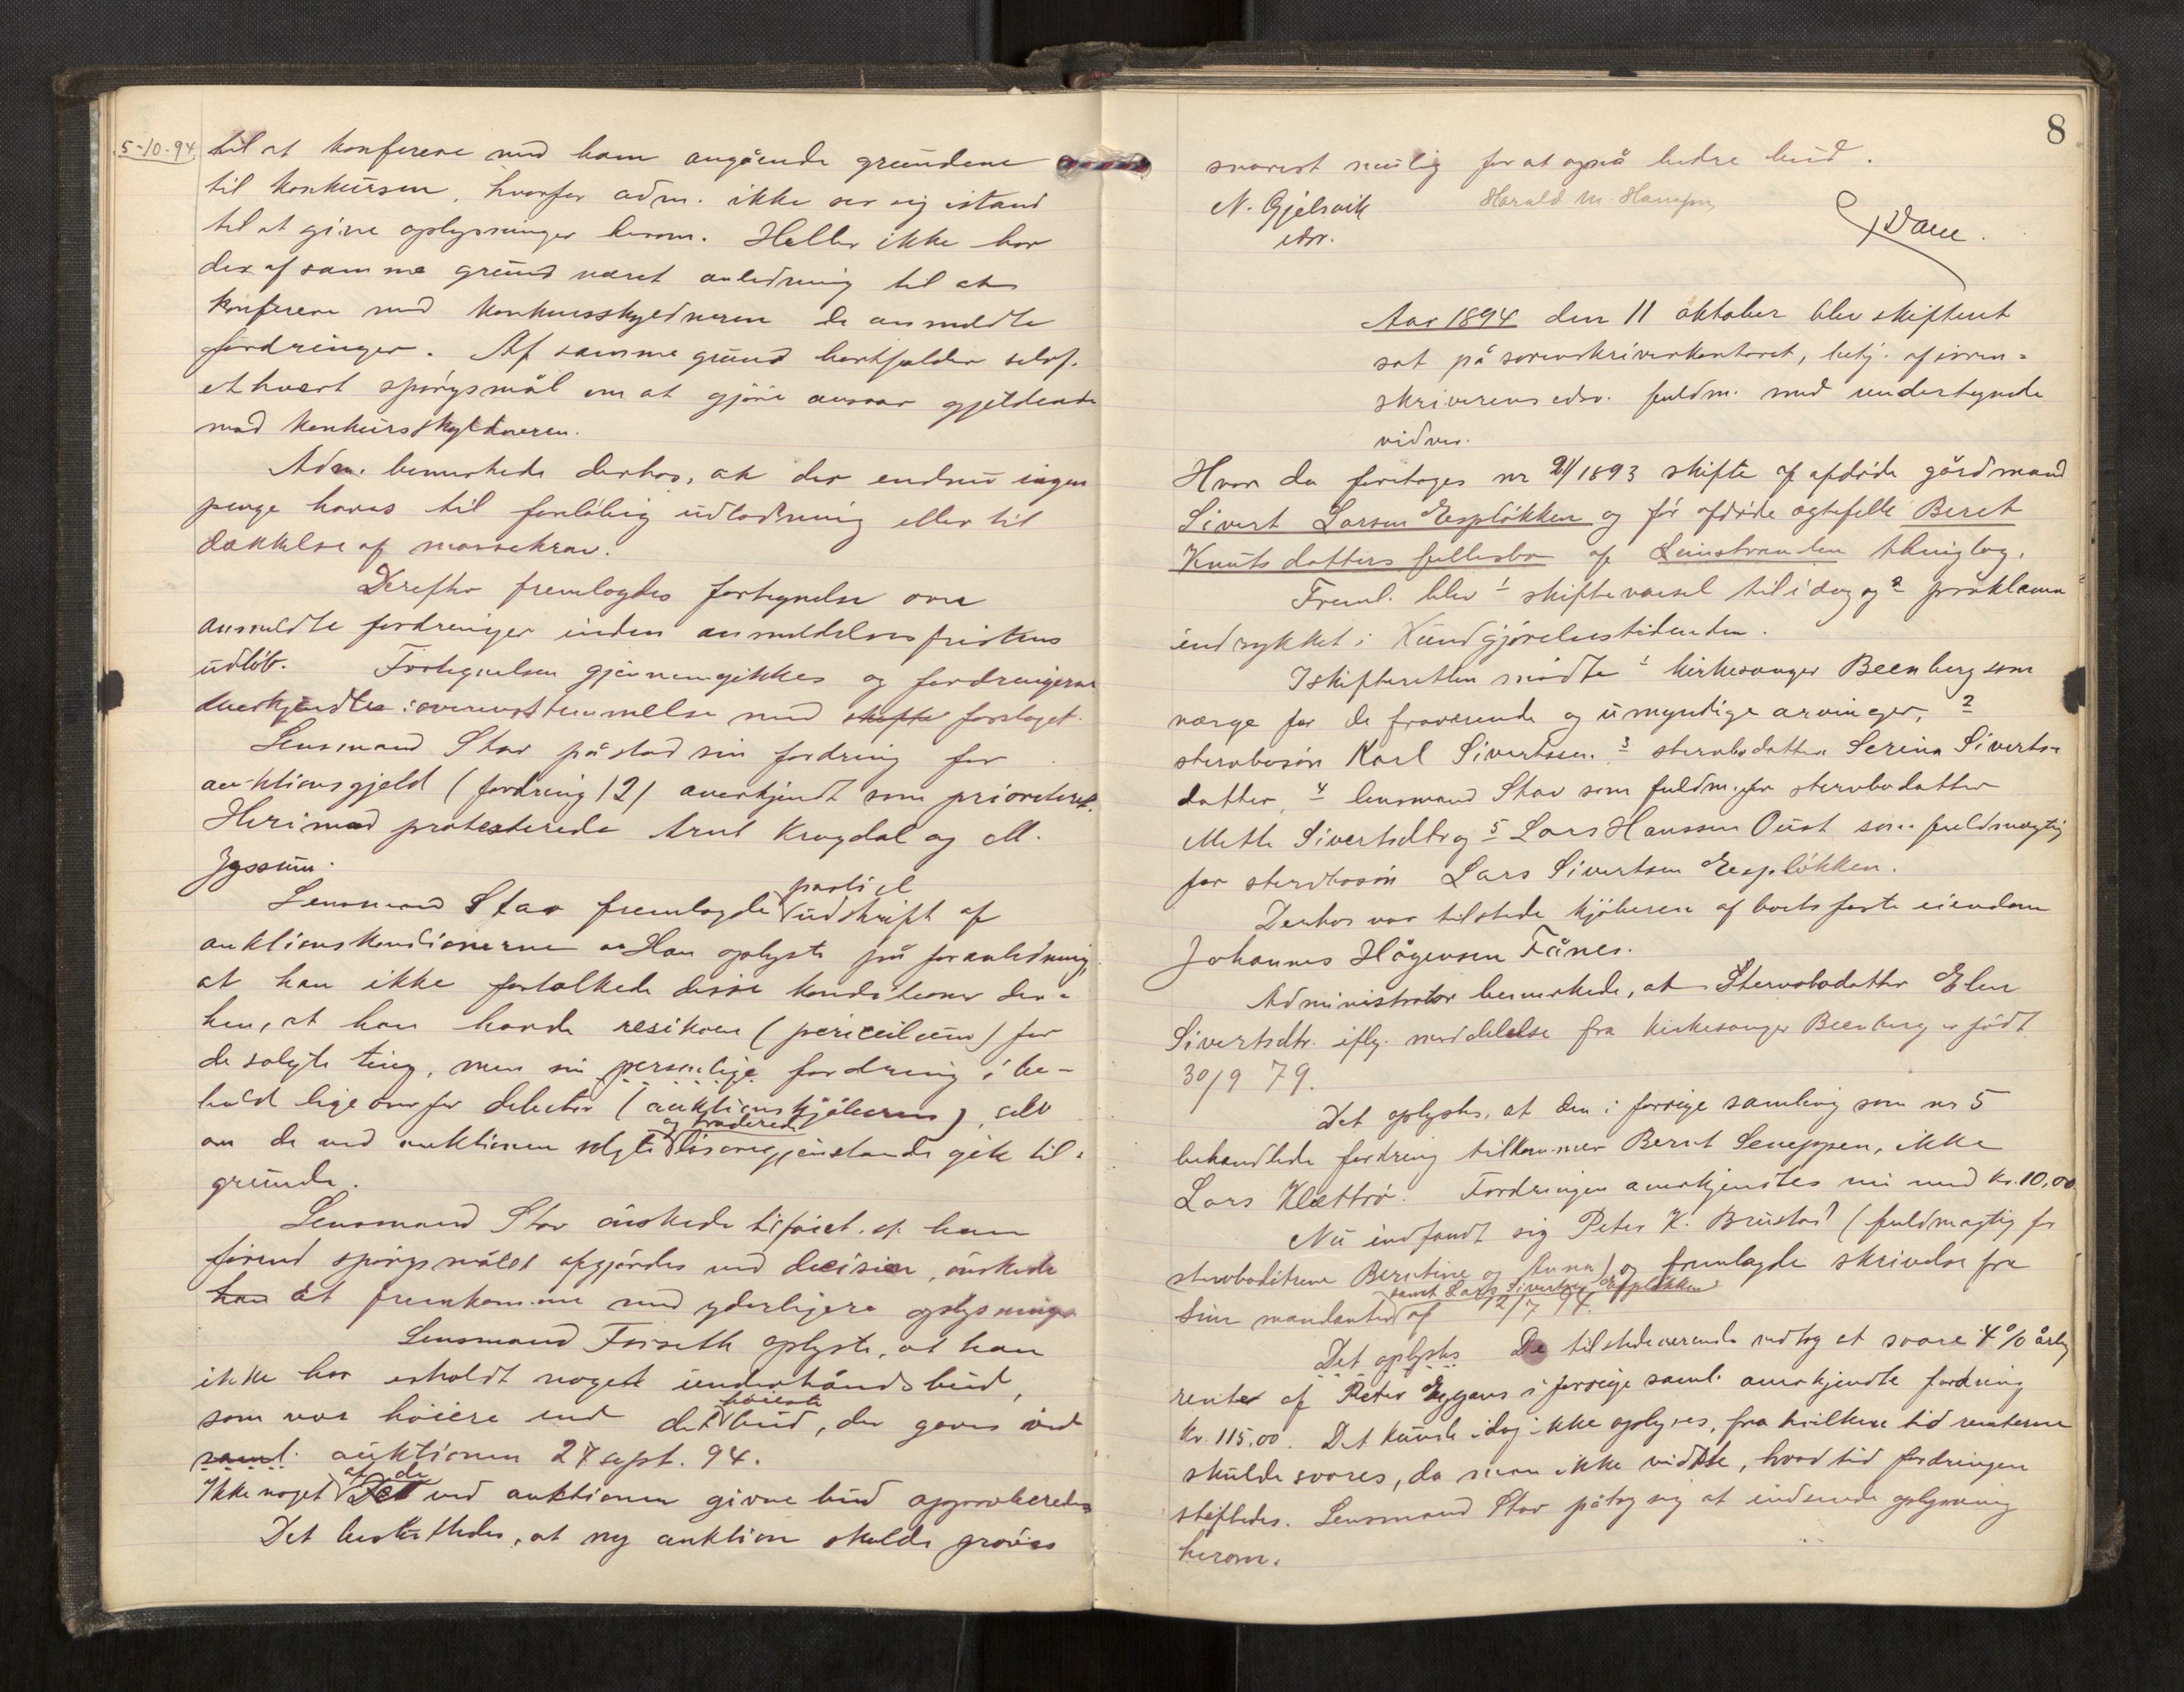 5-10-94
til at konferere med ham angående grundene
til konkursen, hvorfor adm. ikke ser sig istand
til at give oplysninger herom. Heller ikke har
der af samme grund været anledning til at
konferere med konkursskyldneren de anmeldte
fordringer. Af samme grund bortfalder selvf.
ethvert spørgsmål om at gjöre ansvar gjeldende
mod konkursskyldneren.
Adm. bemerkede derhos, at der endnu ingen
penge haves til foreløbig udlodning eller til
dækkelse af massekrav.
Derefter fremlagdes fortegnelse over
anmeldte fordringer inden anmeldelsesfristens
udløb. Fortegnelsen gjennemgikkes og fordringerne
anerkjendtes i overensstemmelse med skifte forslaget.
Lensmand Stav påstod sin fordring for
auktionsgjeld (fordring 12) anerkjendt som prioriteret.
Herimod protesterede Arnt Krogdal og M.
Jyssum.
partiel
Lensmand Stav fremlagde udskrift af
auktionskonditionerne. Han oplyste på foranledning,
at han ikke fortolkede disse konditioner der-
hen, at han havde resikoen (periculum) for
de solgte ting, men sin personlige fordring i be-
hold ligeoverfor debitor (auktionskjøberen), selv
og traderede
om de ved auktionen solgte løsøregjenstande gik til-
grunde.
Lensmand Stav ønskede tilføiet, at han
førend spørgsmålet afgjördes ved decision, ønskede
han at fremkomme med yderligere oplysninger
Lensmand Forseth oplyste, at han
ikke har erholdt noget underhåndsbud,
høieste
som var høiere end det bud, der gaves ved
saml. auktionen 24 sept. 94.
af de
Ikke noget Det ved auktionen givne bud approberedes
Det besluttedes, at ny auktion skulde prøves
8
snarest mulig for at opnå bedre bud.
N. Gjelsvik
edsv.
Harald M. Hansen
Aar 1894 den 11 oktober blev skifteret
sat på sorenskriverkontoret, betj. af soren-
skriverens edsv. fuldm. med undertegnede
vidner.
Hvor da foretoges nr 21/1893 skifte af afdøde gårdmand
Sivert Larsen Espløkken og før afdøde ægtefelle Beret
Knutsdatters fellesbo af Leinstranden thinglag.
Freml. blev 1 skiftevarsel til idag og 2 proklama
indrykket i Kundgjørelsestidenden.
I skifteretten mødte 1 kirkesanger Beenberg som
værge for de fraværende og umyndige arvinger, 2
stervbosøn Karl Sivertsen. 3 stervbodatter Serina Siverts-
datter, 4 lensmand Stav som fuldm. for stervbodatter
Mette Sivertsdtr og 5 Lars Hanssen Oust som fuldmægtig
for stervbosøn Lars Sivertsen Espløkken.
Derhos var tilstede kjøberen af boets faste eiendom
Johannes Hågensen Fånes.
Administrator bemerkede, at Stervbodatter Elen
Sivertsdtr. iflg. meddelelse fra kirkesanger Beenberg er født
30/9 79.
Det oplystes, at den i forrige samling som nr 5
behandlede fordring tilkommer Bernt Seneppen, ikke
Lars Klættrø. Fordringen anerkjendtes nu med kr. 10,00
Nu indfandt sig Peter K. Brustad (fuldmægtig for
stervbodøtrene Berntine og Anna) og fremlagde skrivelse fra
samt Lars Sivertsen Espløkken
sine mandanter af 12/7 94.
Det oplystes De tilstedeværende vedtog at svare 4% årlig
renter af Peter Eggens i forrige saml. anerkjendte fordring
kr. 115,00. Det kunde idag ikke oplyses, fra hvilken tid renterne
skulde svares, da man ikke vidste, hvad tid fordringen
stiftedes. Lensmand Stav påtog sig at indsende oplysning
herom.